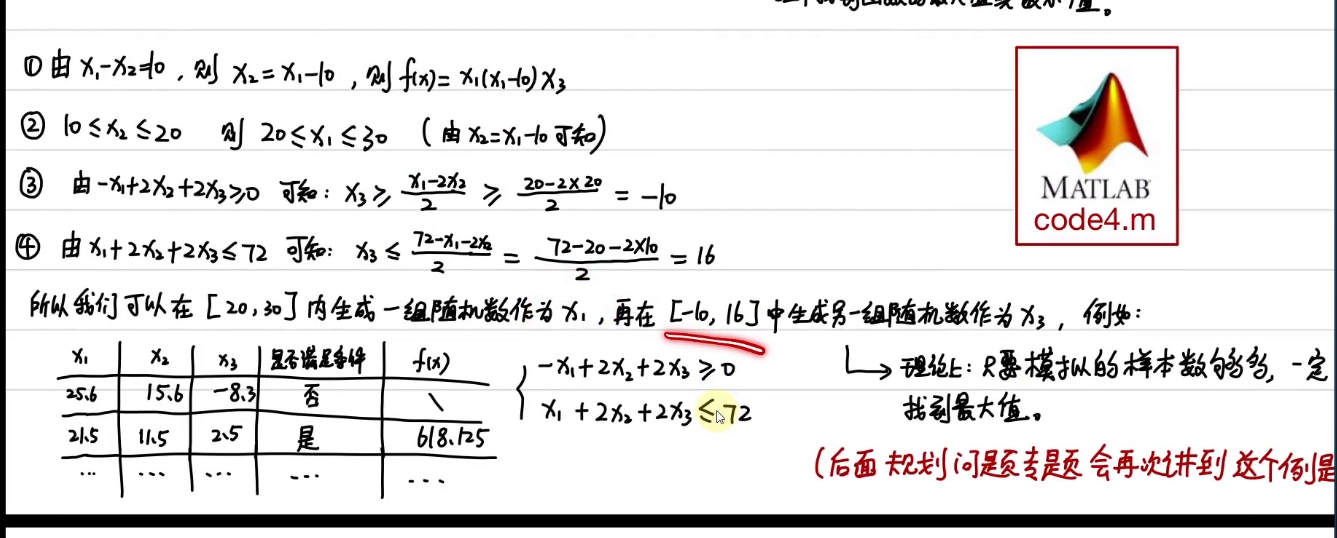 ① 由 x₁-x₂=10, 则 x₂=x₁-10, 则 f(x)=x₁(x₁-10)x₃
② 10≤x₂≤20 则 20≤x₁≤30 (由 x₂=x₁-10 可知)
③ 由 -x₁+2x₂+2x₃≥0 可知: x₃ ≥ (x₁-2x₂)/2 ≥ (20-2×20)/2 = -10
④ 由 x₁+2x₂+2x₃≤72 可知: x₃ ≤ (72-x₁-2x₂)/2 = (72-20-2×10)/2 = 16
所以我们可以在 [20,30] 内生成一组随机数作为 x₁, 再在 [-10,16] 中生成另一组随机数作为 x₃, 例如:
x₁ x₂ x₃ 是否满足条件 f(x)
25.6 15.6 -8.3 否 \
21.5 11.5 2.5 是 618.125
... ... ... ... ...
-x₁+2x₂+2x₃≥0
x₁+2x₂+2x₃≤72
→ 理论上: 只要模拟的样本数够多, 一定
找到最大值。
(后面规划问题专题会再次讲到这个例题
MATLAB
code4.m